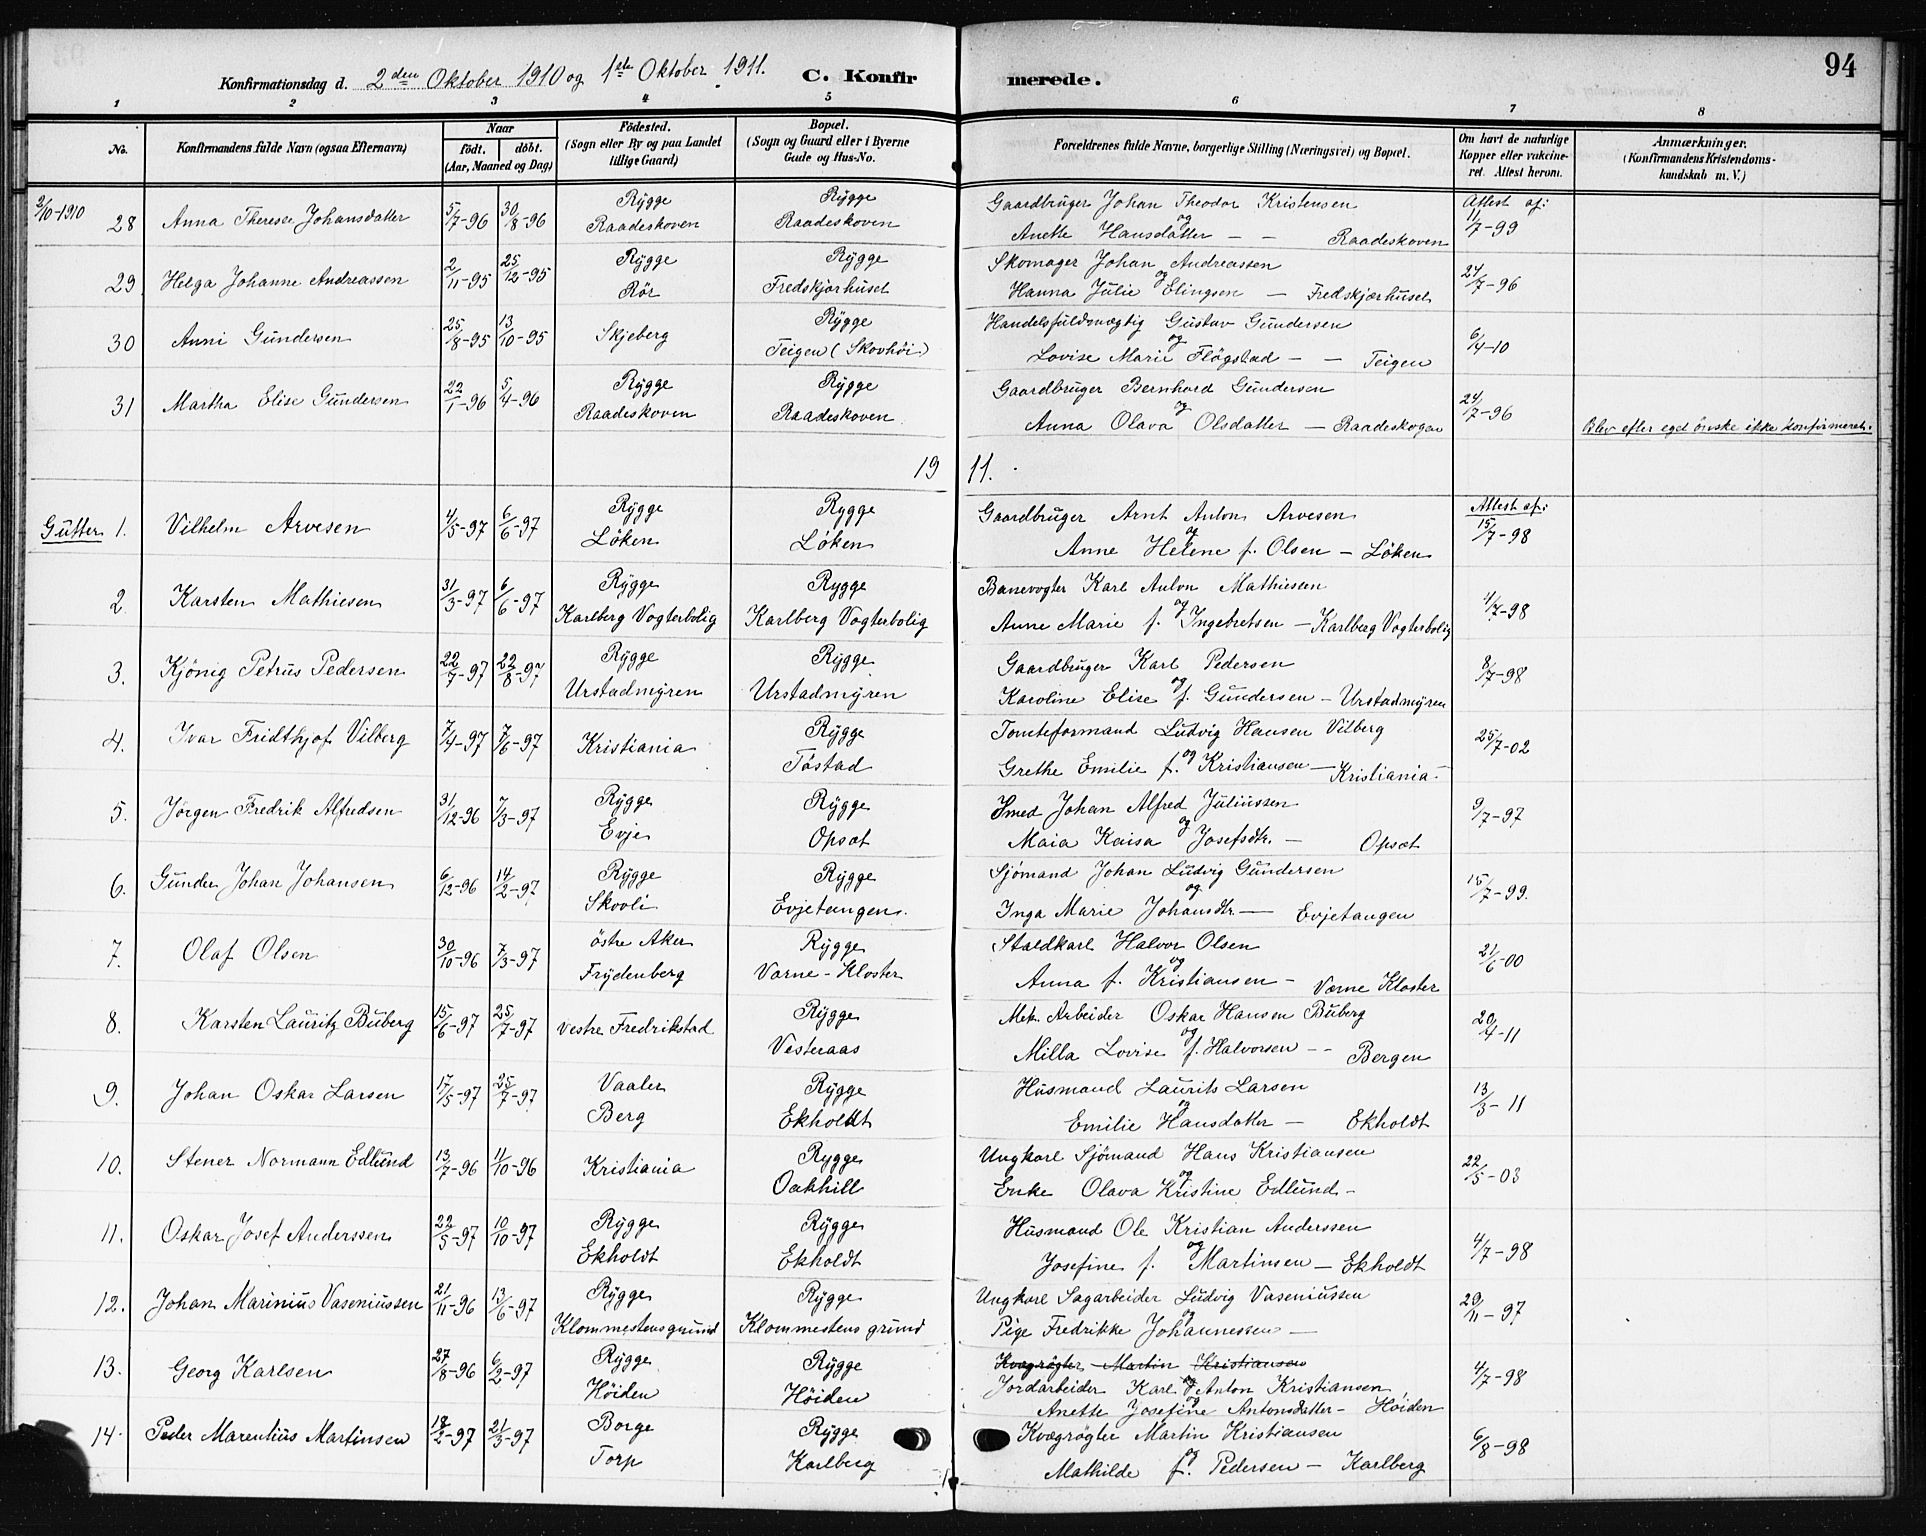 94
Konfirmationsdag d. 2den Oktober 1910 og 1ste Oktober 1911. C. Konfirmerede.
1 2 3 4 5 6 7 8
No. Konfirmandens fulde Navn (ogsaa Efternavn) Naar født. døbt. (Aar, Maaned og Dag) Fødested. (Sogn eller By og paa Landet tillige Gaard) Bopæl. (Sogn og Gaard eller i Byerne Gade og Hus-No. Forældrenes fulde Navne, borgerlige Stilling (Næringsvei) og Bopæl. Om havt de naturlige Kopper eller vaccineret. Attest herom. Anmærkninger. (Konfirmandens Kristendomskundskab m. V.)
2/10-1910 Rygge Rygge Gaardbruger Johan Theodor Kristensen Attest af:
28 Anna Therese Johansdatter 5/7-96 30/8-96 Raadeskoven Raadeskoven og Anette Hansdatter - - Raadeskoven 11/7-99
Rygge Rygge Skomager Johan Andreassen
29 Helga Johanne Andreassen 2/11-95 25/12-95 Rör Fredskjærhuset og Hanna Julie Elingsen - Fredskjærhuset 24/7-96
Rygge Handelsfuldmægtig Gustav Gundersen
30 Anni Gundersen 25/8-95 13/10-95 Skjeberg Teigen (Skovhöi) og Lovise Marie Flögstad - - Teigen 6/4-10
Rygge Rygge Gaardbruger Bernhard Gundersen
31 Martha Elise Gundersen 22/1-96 5/4-96 Raadeskoven Raadeskoven og Anna Olava Olsdatter - Raadeskogen 24/7-96 Blev efter eget önske ikke konfirmeret.
19 11.
Rygge Rygge Gaardbruger Arnt Anton Arvesen Attest af:
Gutter 1. Vilhelm Arvesen 4/5-97 6/6-97 Löken Löken og Anne Helene f. Olsen - Löken 15/7-98
Rygge Rygge Banevogter Karl Anton Mathiesen
2. Karsten Mathiesen 31/3-97 6/6-97 Karlberg Vogterbolig Karlberg Vogterbolig og Anne Marie f. Ingebretsen - Karlberg Vogterbolig 4/7-98
Rygge Rygge Gaardbruger Karl Pedersen
3. Kjönig Petrus Pedersen 22/7-97 22/8-97 Urstadmyren Urstadmyren og Karoline Elise f. Gundersen - Urstadmyren 8/7-98
Rygge Tomteformand Ludvig Hansen Vilberg
4. Ivar Fridthjof Vilberg 7/4-97 7/6-97 Kristiania Töstad og Grethe Emilie f. Kristiansen - Kristiania 25/7-02
Rygge Rygge Smed Johan Alfred Juliussen
5. Jörgen Fredrik Alfredsen 31/12-96 7/3-97 Evje Opsat og Maia Kaisa Josefsdtr. - Opsat 9/7-97
Rygge Rygge Sjömand Johan Ludvig Gundersen
6. Gunder Johan Johansen 6/12-96 14/2-97 Skovli Evjetangen. og Inga Marie Johansdtr. - Evjetangen 15/7-99.
östre Aker Rygge Staldkarl Halvor Olsen
7. Olaf Olsen 30/10-96 7/3-97 Frydenberg Varne-Kloster og Anna f. Kristiansen - Værne Kloster 21/6-00
Rygge Mek. Arbeider Oskar Hansen Buberg
8. Karsten Lauritz Buberg 15/6-97 25/7-97 Vestre Fredrikstad Vesteraas og Milla Lovise f. Halvorsen - - Bergen 20/4-11
Vaaler Rygge Husmand Laurits Larsen
9. Johan Oskar Larsen 17/5-97 25/7-97 Berg Ekholdt og Emilie Hansdatter - Ekholdt 13/3-11
Rygge Ungkarl Sjömand Hans Kristiansen
10. Stener Normann Edlund 13/7-96 11/10-96 Kristiania Oakhill og Enke Olava Kristine Edlund - 22/5-03
Rygge Rygge Husmand Ole Kristian Anderssen
11. Oskar Josef Anderssen 22/5-97 10/10-97 Ekholdt Ekholdt og Josefine f. Martinsen - Ekholdt 4/7-98
Rygge Rygge Ungkarl Sagarbeider Ludvig Vaseniussen
12. Johan Marinius Vaseniussen 21/11-96 13/6-97 Klommestensgrund Klommestens grund og Pige Fredrikke Johannessen - 29/11-97
Rygge Rygge Kvægrögter Martin Kristiansen
13. Georg Karlsen 27/8-96 6/2-97 Höiden Höiden Jordarbeider Karl Anton Kristiansen 4/7-98
og Anette Josefine Antonsdatter - Höiden
Borge Rygge Kvægrögter Martin Kristiansen
14. Peder Marentius Martinsen 18/2-97 21/3-97 Torp Karlberg og Mathilde f. Pedersen - Karlberg 6/8-98